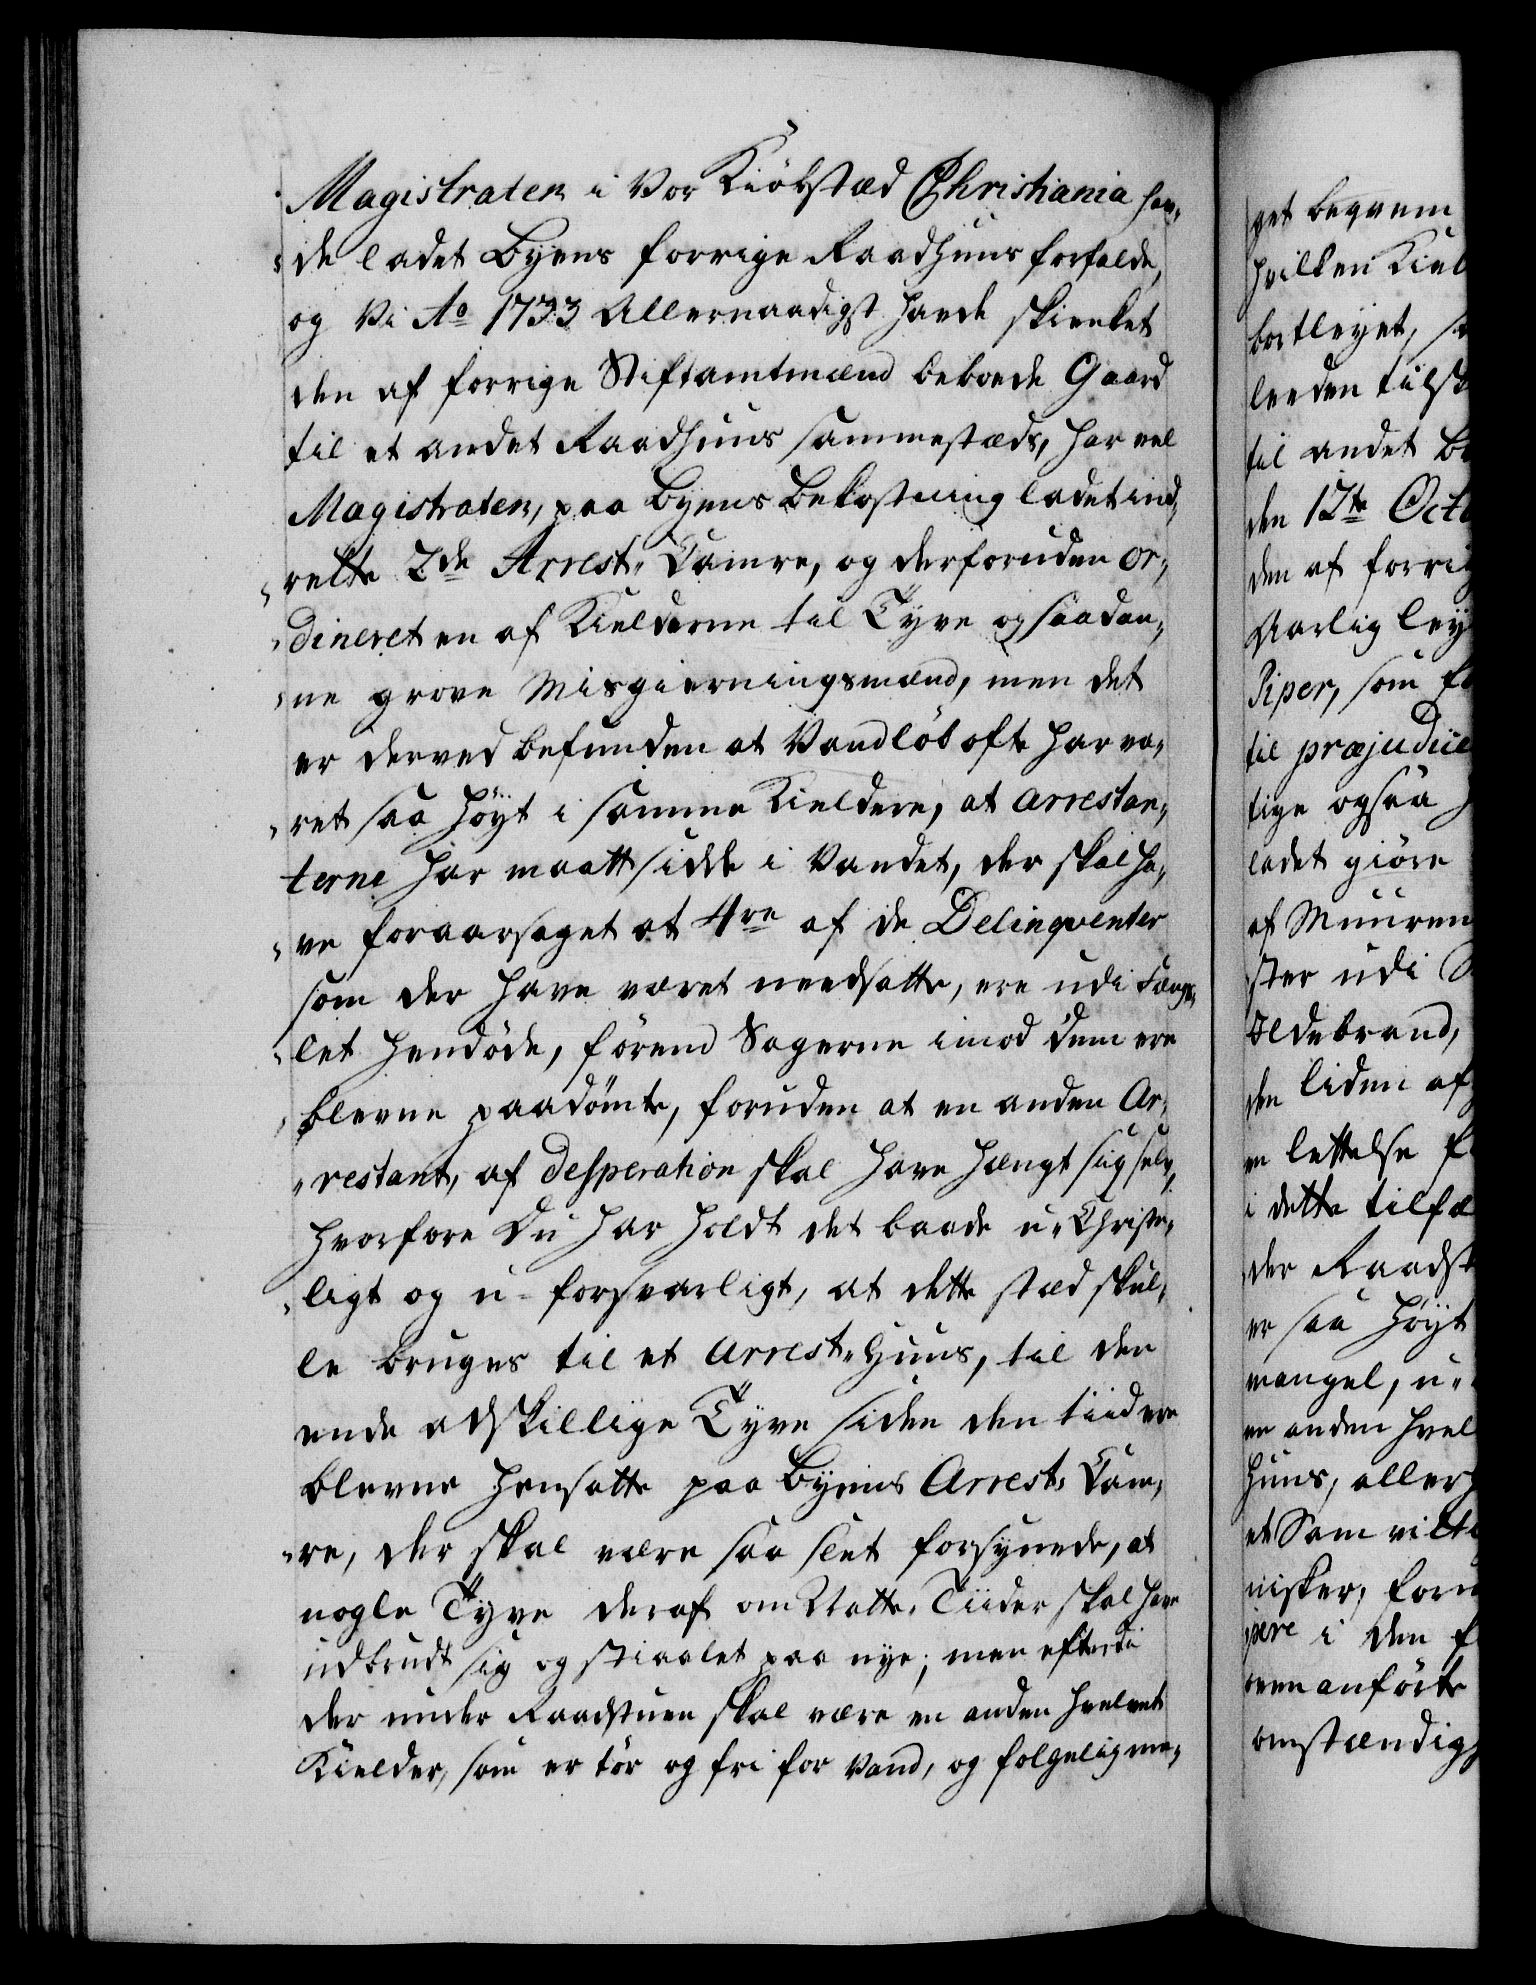 Magistraten i Vor Kiöbstæd Christiania hav„
„de ladet Byens forrige Raadhuus forfalde,
og Vi Ao 1733 Allernaadigst havde skienket
den af forrige Stiftamtmænd beboede Gaard
til et andet Raadhuus sammestæds, har vel
Magistraten, paa Byens Bekostning ladet ind„
„rette 2de Arrest„ Camre, og derforuden or„
„dineret en af Kielderne til Tyve og saadan„
„ne grove Misgierningsmænd, men det
er derved befunden at Vandløb ofte har væ„
„ret saa höyt i samme Kieldere, at Arrestan„
terne har maatt sidde i Vandet, der skal ha„
„ve foraarsaget at 4re af de Delinqventer
som der have været needsatte, ere udi Fæng„
„let hendöde, förend Sagerne imod dem ere
blevne paadömte, foruden at en anden Ar„
„restant, af Desperation skal have hængt sig selv,
hvorfore Du har holdt det baade u„Christe„
„ligt og u-forsvarligt, at dette stæd skul„
le bruges til et Arrest„Huus, til den
ende adskillige Tyve siden den tiid ere
blevne hensatte paa Byens Arrest„ Cam„
„re, der skal være saa slet forsynede, at
nogle Tyve deraf om Natte„ Tiider skal have
udbrudt sig og stiaalet paa nye; men efterdi
der under Raadstuen skal være en anden hvelvet
Kielder, som er tör og fri for Vand, og fölgelig me„
get beqvem
hvilken Kiel
bortleyet, s
leeden tilst
til andet B
den 12te Octo
den af forrig
Aarlig ley
Piper, som f
til præjudice
tige ogsaa
ladet giöre
af Muuren
ster udi
Ildebrand,
den liden af
en lettelse f
i dette tilfæ
der Raadst
er saa höyt
mangel, u„
en anden hvel
huus, aller
et Sam
nisker, foru
pere i den f
oven anförte
omstændig